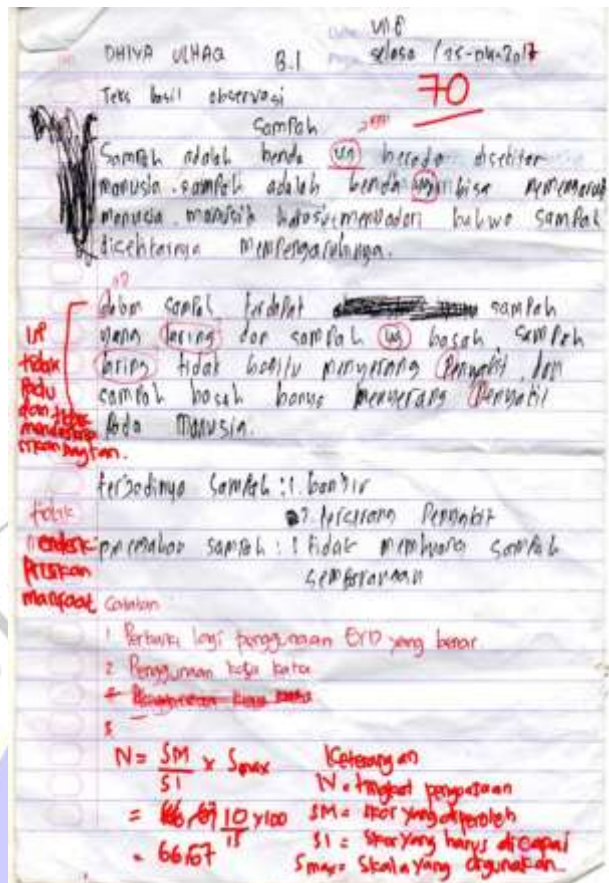 VII8
DHIYA ULHAQ B.I selasa / 25-04-2017
Teks hasil observasi 70
SamPah
SamPah adalah benda yg berada disekitar
manusia. sampah adalah benda yg bisa
manusia. manusia harus menyadari bahwa SamPah
disekitarnya memPengaruhinya.
dalam sampah terdaPat sampah
yang kering dan samPah yg basah. SamPah
kering tidak begitu menyerang Penyakit dan
samPah basah menyerang Penyakit
Pada manusia.
tidak
Padu
dan tidak
terjadinya SamPah : 1. banjir
2. terserang Penyakit
tidak
samPah : 1 tidak membuang SamPah
sembarangan
manfaat
Catatan
1 Perbaiki lagi penggunaan EYD yang benar.
2 Penggunaan kosa kata
N = SM / SI x Smax Keterangan
N = tingkat penguasaan
= 10 / 15 x 100 SM = skor yang diperoleh
SI = Skor yang harus dicapai
= 66,67 Smax = Skala yang digunakan